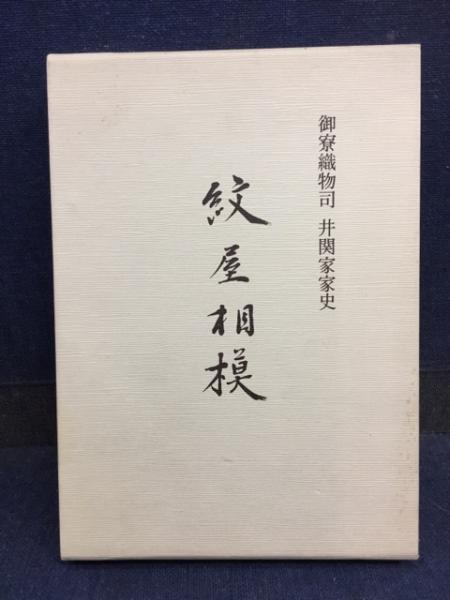 御寮織物司 井関家家史
紋屋相模